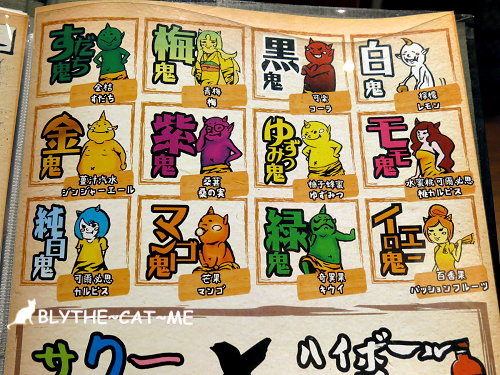 すだち鬼
金桔
すだち
梅鬼
青梅
梅
黒鬼
可樂
コーラ
白鬼
檸檬
レモン
金鬼
薑汁汽水
ジンジャーエール
紫鬼
桑葚
桑の実
ゆずみつ鬼
柚子蜂蜜
ゆずみつ
モモ鬼
水蜜桃可爾必思
桃カルピス
純白鬼
可爾必思
カルピス
マンゴ鬼
芒果
マンゴ
緑鬼
奇異果
キウイ
イエロー鬼
百香果
パッションフルーツ
BLYTHE~CAT~ME
サクー
ハイボー